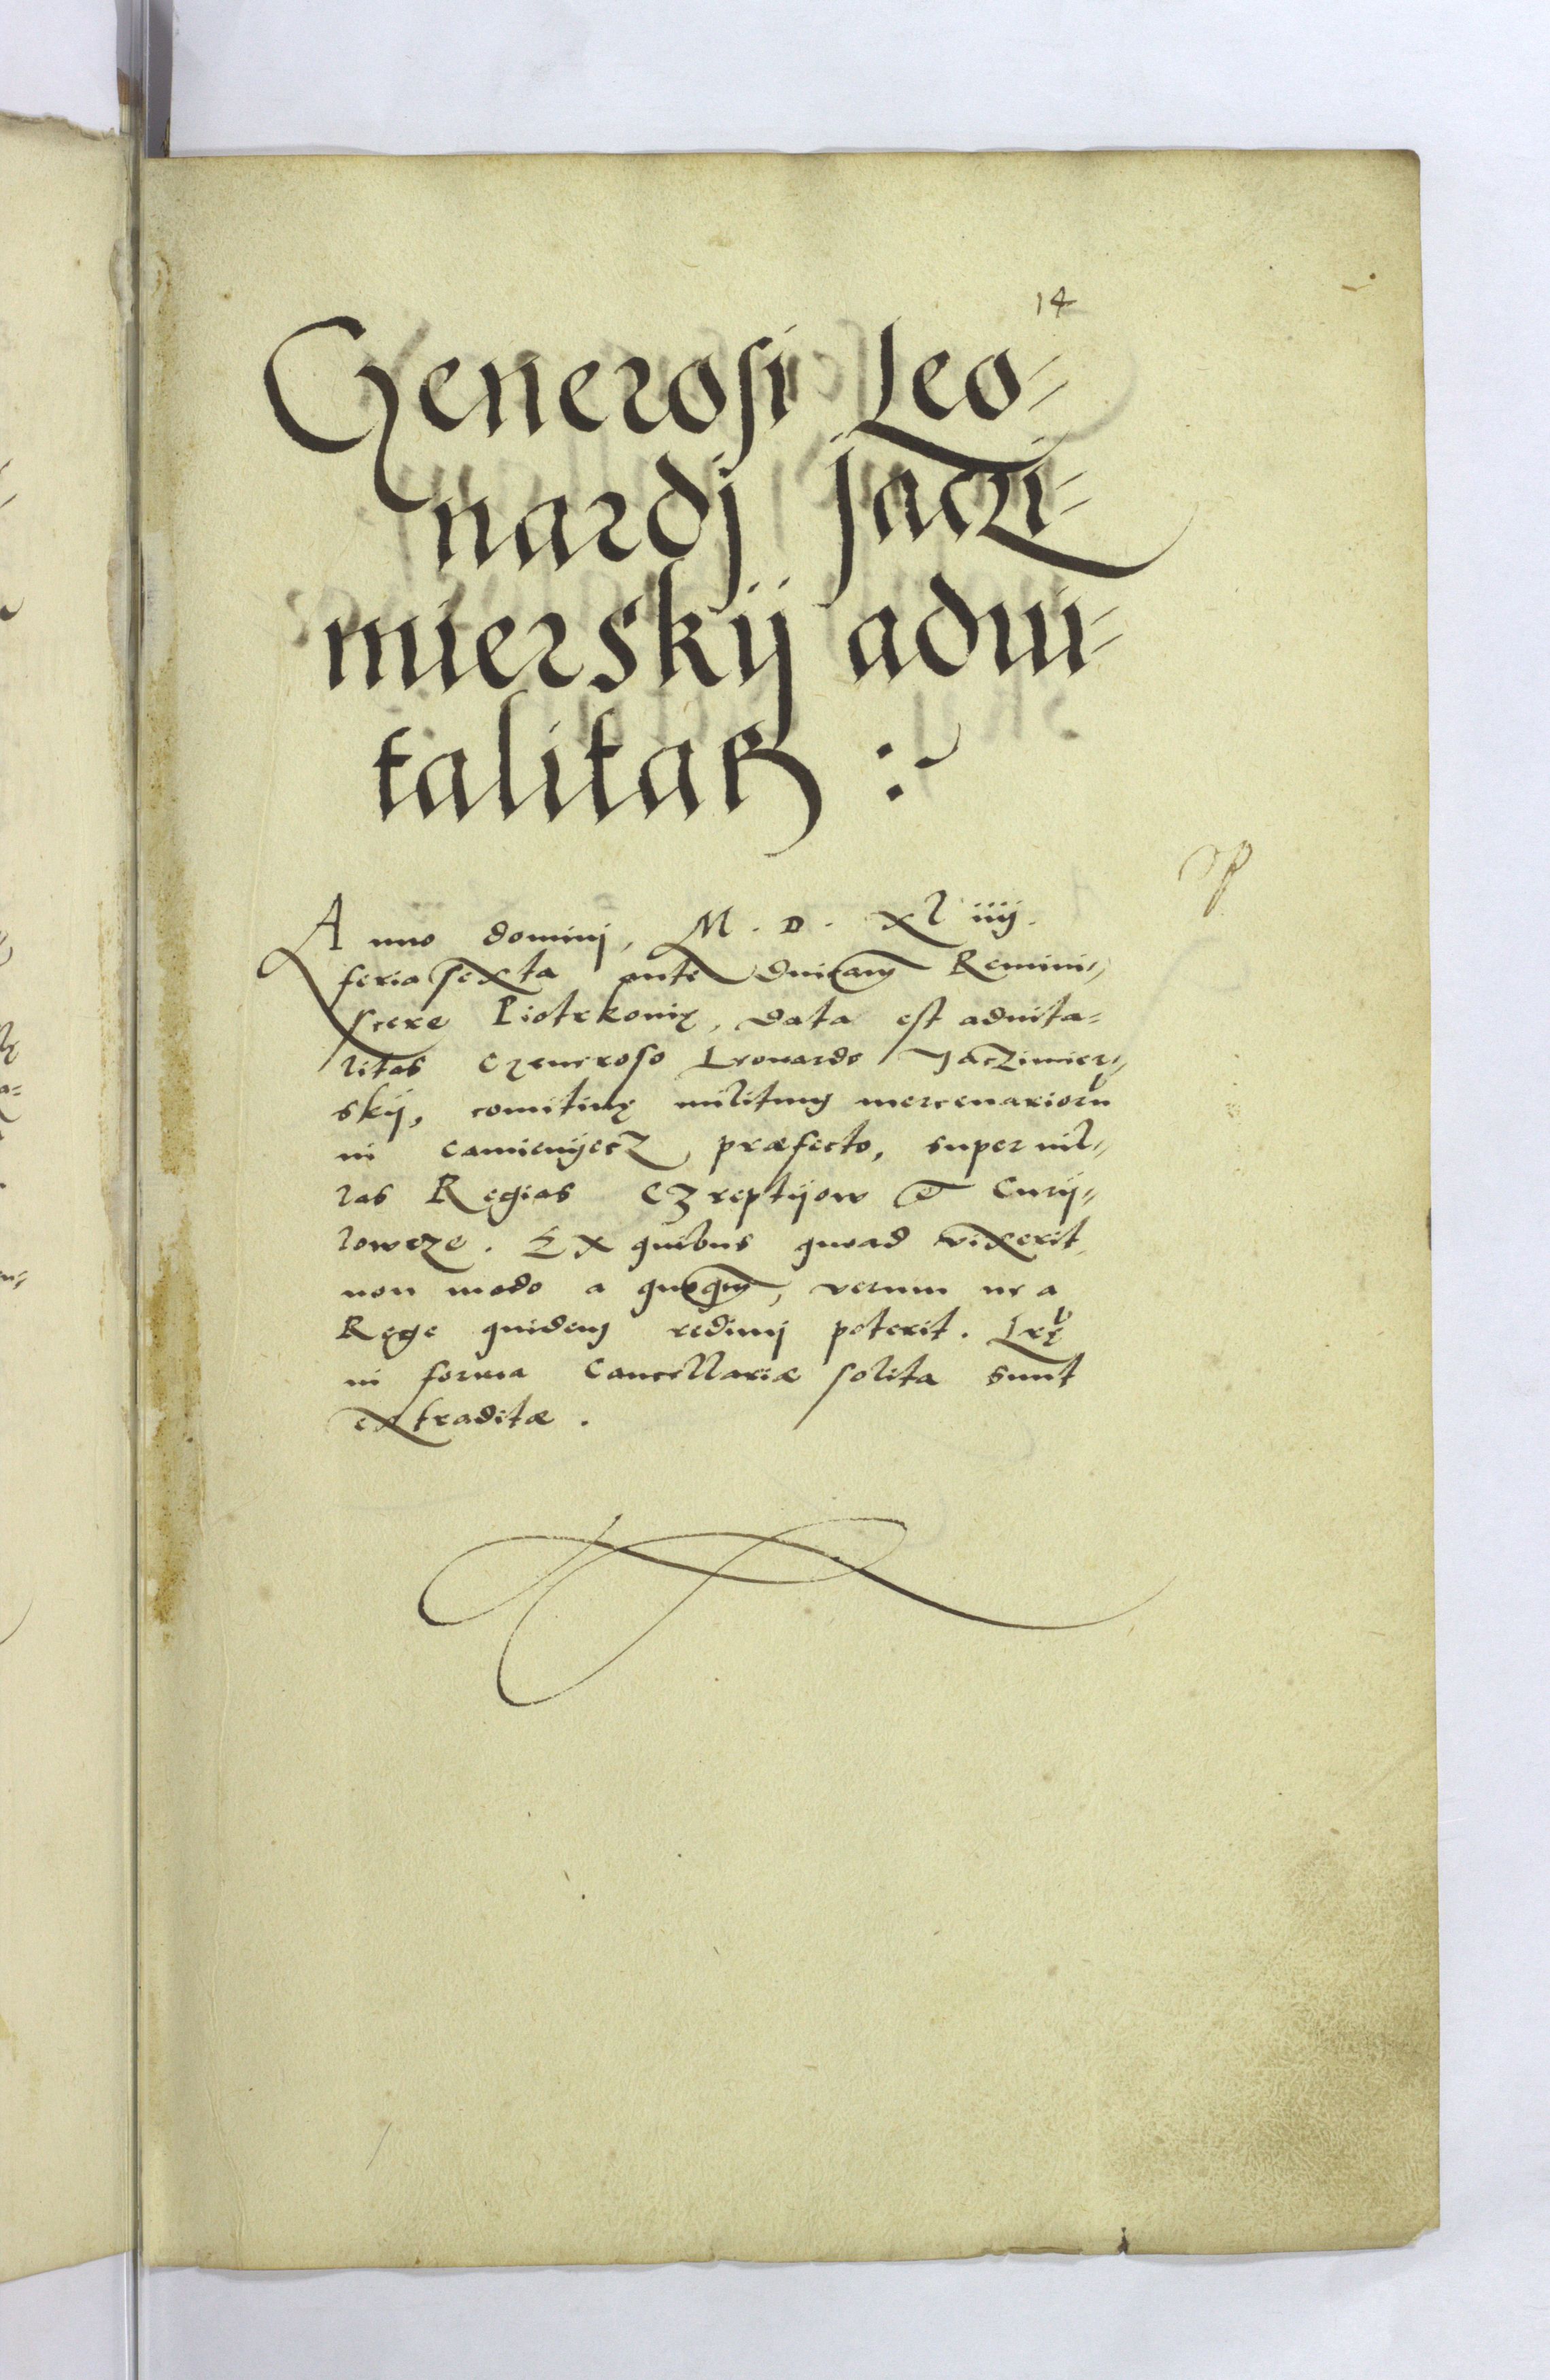 14
Generosi Leo-
nardj Jaczi-
mierskij advi-
talitas :
Anno dominj, M. D. xl iiij.
feria sexta ante dnicam Remini-
scere Piotrkovię, data est advita-
litas Generoso Leonardo Jaczimier-
skij, comitivę militum mercenariorũ
in Camienijecz præfecto, super vil-
las Regias Czreptijow et Curij-
lowcze. Ex quibus quoad vixerit
non modo a quoqm, verum ne a
Rege quidem redimj poterit. Lrę
in forma Cancellariæ solita sunt
extraditæ.